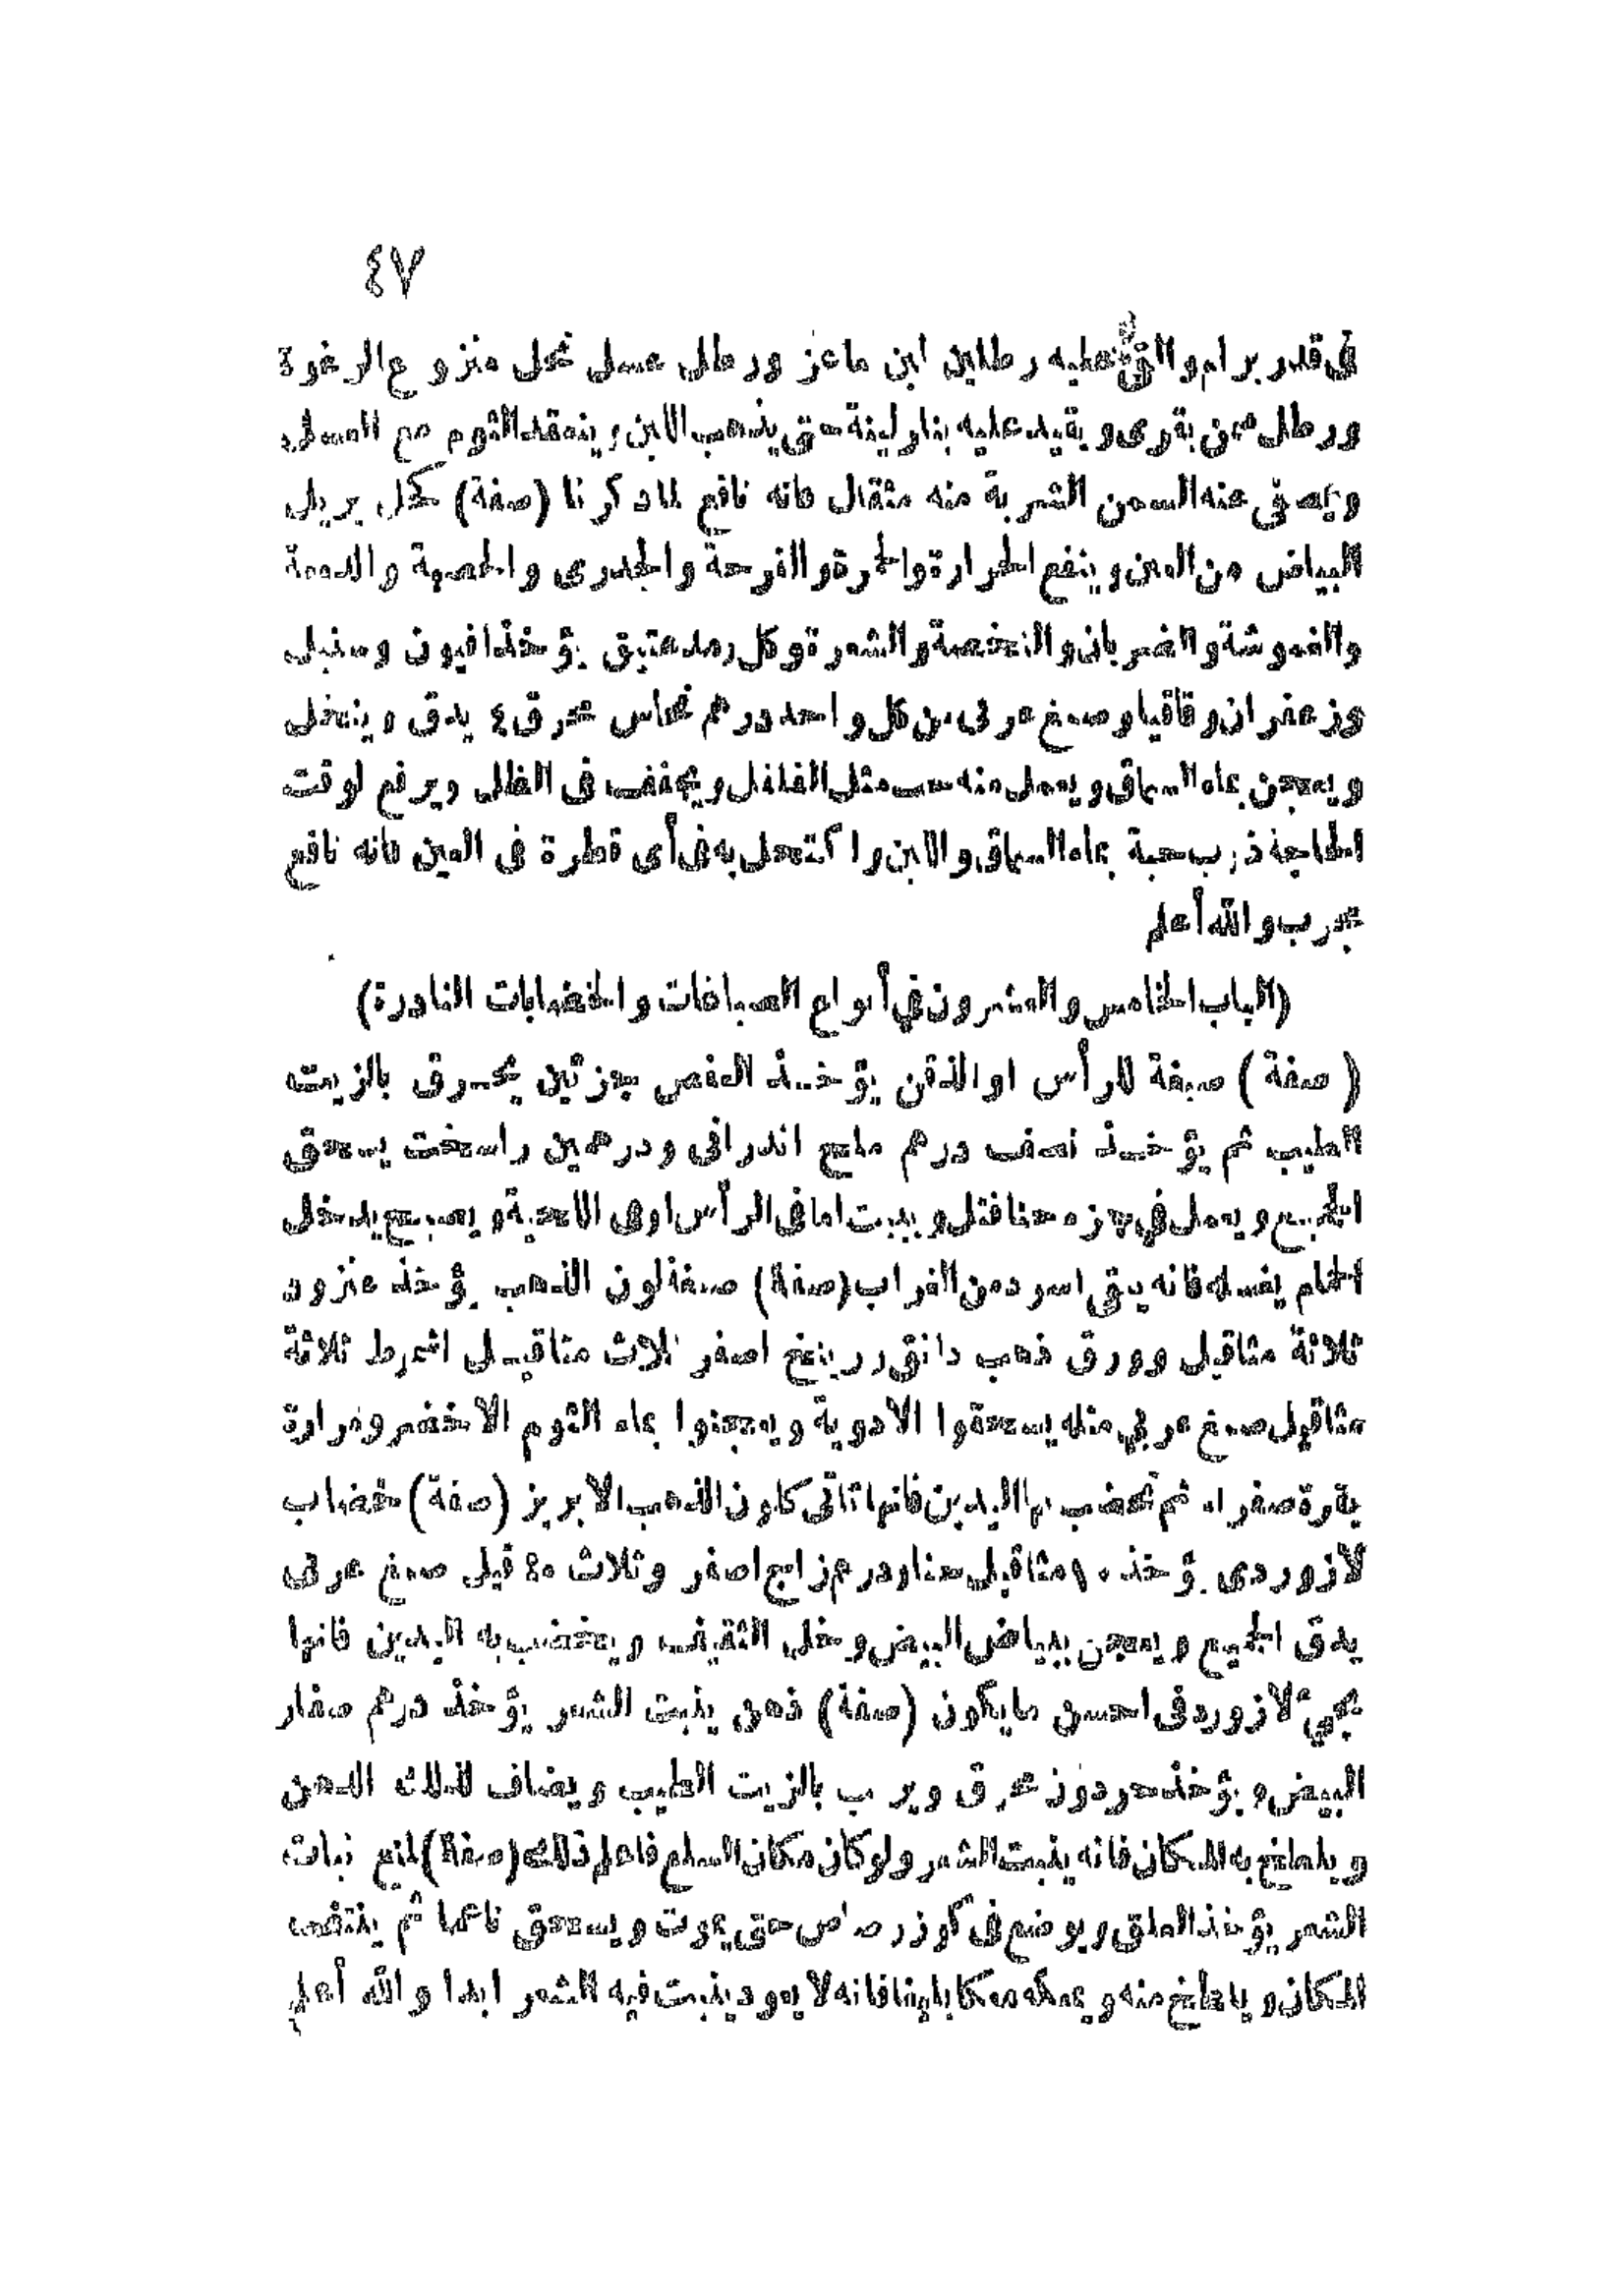 ٤٧
في قدر برام والقي عليه رطلين لبن ماعز ورطل عسل نحل منزوع الرغوة
ورطل سمن بقرى ويقيد عليه بنار لينة حتى يذهب اللبن وينعقد الثوم مع العسل
ويصفى عنه السمن الشربة منه مثقال فانه نافع لما ذكرنا (صفة) كحل يزيل
البياض من العين وينفع الحرارة والحمرة والقرحة والجدرى والحصبة والدمعة
والغموشة والضربان والنخصة والشعرة وكل رمد عتيق يؤخذ افيون وسنبل
وزعفران وقاقيا وصمغ عربى من كل واحد درهم نحاس محرق ٤ يدق وينخل
ويعجن بماء السماق ويعمل منه حب مثل الفلفل ويجفف فى الظل ويرفع لوقت
الحاجة ذرب حبة بماء السماق واللبن واكتحل به فى أى قطرة فى العين فانه نافع
مجرب والله أعلم
(الباب الخامس والعشرون في أنواع الصباغات والخضابات النادرة)
(صفة) صبغة للرأس او الذقن يؤخذ العفص بجزئين يحرق بالزيت
الطيب ثم يؤخذ نصف درهم ملح اندرانى ودرهمين راسخت يسحق
الجميع ويعمل في جزء حنا فتل ويبيت اما فى الرأس اوفى اللحية ويصبح يدخل
الحمام يغسله فانه يبقى اسود من الغراب (صفة) صبغة لون الذهب يؤخذ عنزروت
ثلاثة مثاقيل وورق ذهب دانق وزرينخ اصفر ثلاث مثاقيل اشرط ثلاثة
مثاقيل صمغ عربي مثله يسحقوا الادوية ويعجنوا بماء الثوم الاخضر ومرارة
بقرة صفراء ثم تخضب بها اليدين فانها تاتى كلون الذهب الابريز (صفة) خضاب
لازوردى يؤخذ ١٠ مثاقيل حنا ودرهم زاج اصفر وثلاث مثاقيل صمغ عربى
يدق الجميع ويعجن ببياض البيض وخل الثقيف ويخضب به اليدين فانها
تجيء لازوردى احسن ما يكون (صفة) دهن ينبت الشعر يؤخذ درهم صفار
البيض ويؤخذ حردون محرق ويرب بالزيت الطيب ويضاف لذلك الدهن
ويلطخ به المكان فانه ينبت الشعر ولو كان مكان السلع فاعلم ذلك (صفة) لمنع نبات
الشعر يؤخذ العلق ويوضع فى كوز رصاص حتى يموت ويسحق ناعما ثم ينتف
المكان ويلطخ منه ويمعكه معكا بليغا فانه لا يعود ينبت فيه الشعر ابدا والله أعلم